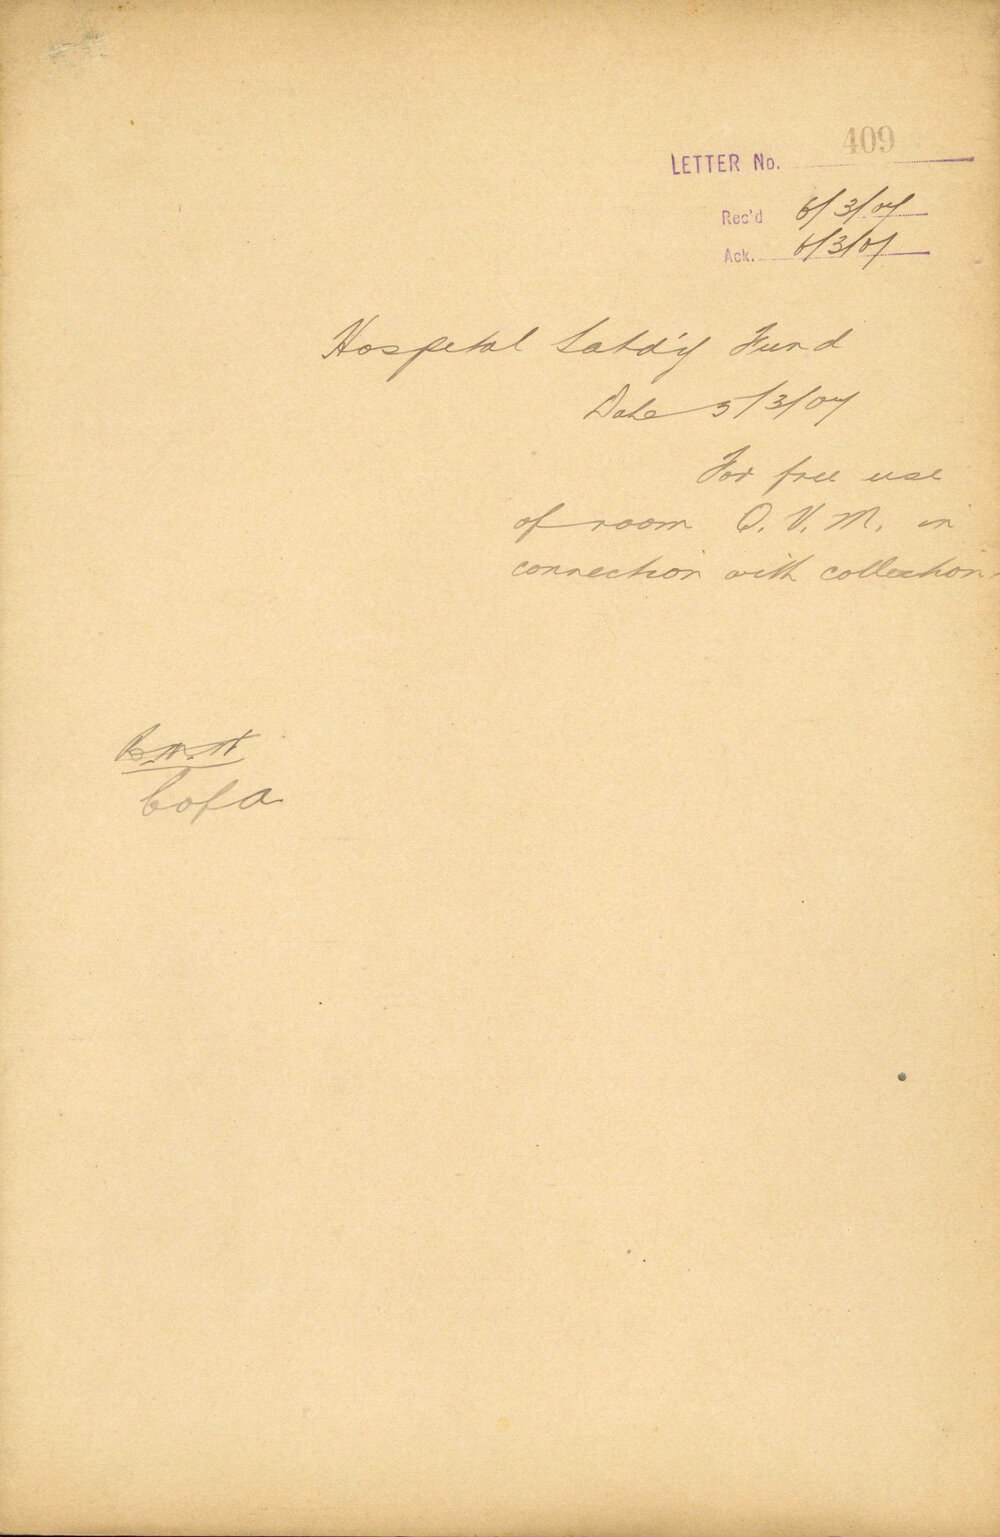 LETTER No. 409
Rec'd 6/3/07
Ack. 6/3/07
Hospital Satd'y Fund
Date 5/3/07
For free use
of room Q. V. M. in
connection with collection
C of A